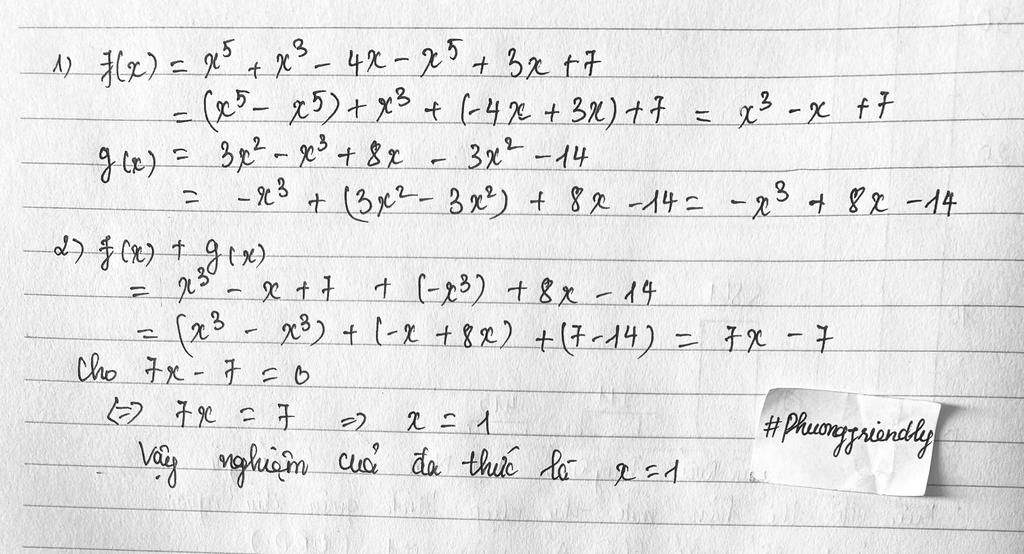 1) f(x) = x⁵ + x³ - 4x - x⁵ + 3x + 7
= (x⁵ - x⁵) + x³ + (-4x + 3x) + 7 = x³ - x + 7
g(x) = 3x² - x³ + 8x - 3x² - 14
= -x³ + (3x² - 3x²) + 8x - 14 = -x³ + 8x - 14
2) f(x) + g(x)
= x³ - x + 7 + (-x³) + 8x - 14
= (x³ - x³) + (-x + 8x) + (7 - 14) = 7x - 7
Cho 7x - 7 = 0
⇔ 7x = 7 ⇒ x = 1
Vậy nghiệm của đa thức là x = 1
#Phuongfriendly